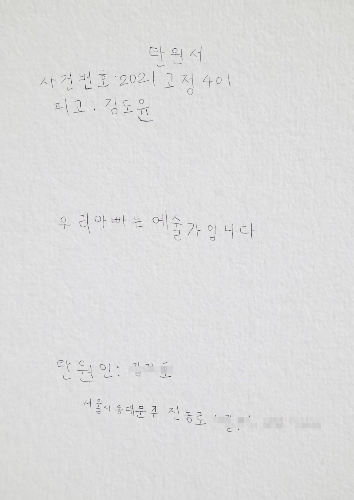 탄원서
사건번호:2021고정401
피고.김도윤
우리아빠는예술가입니다
탄원인:
서울시동대문구 전농로